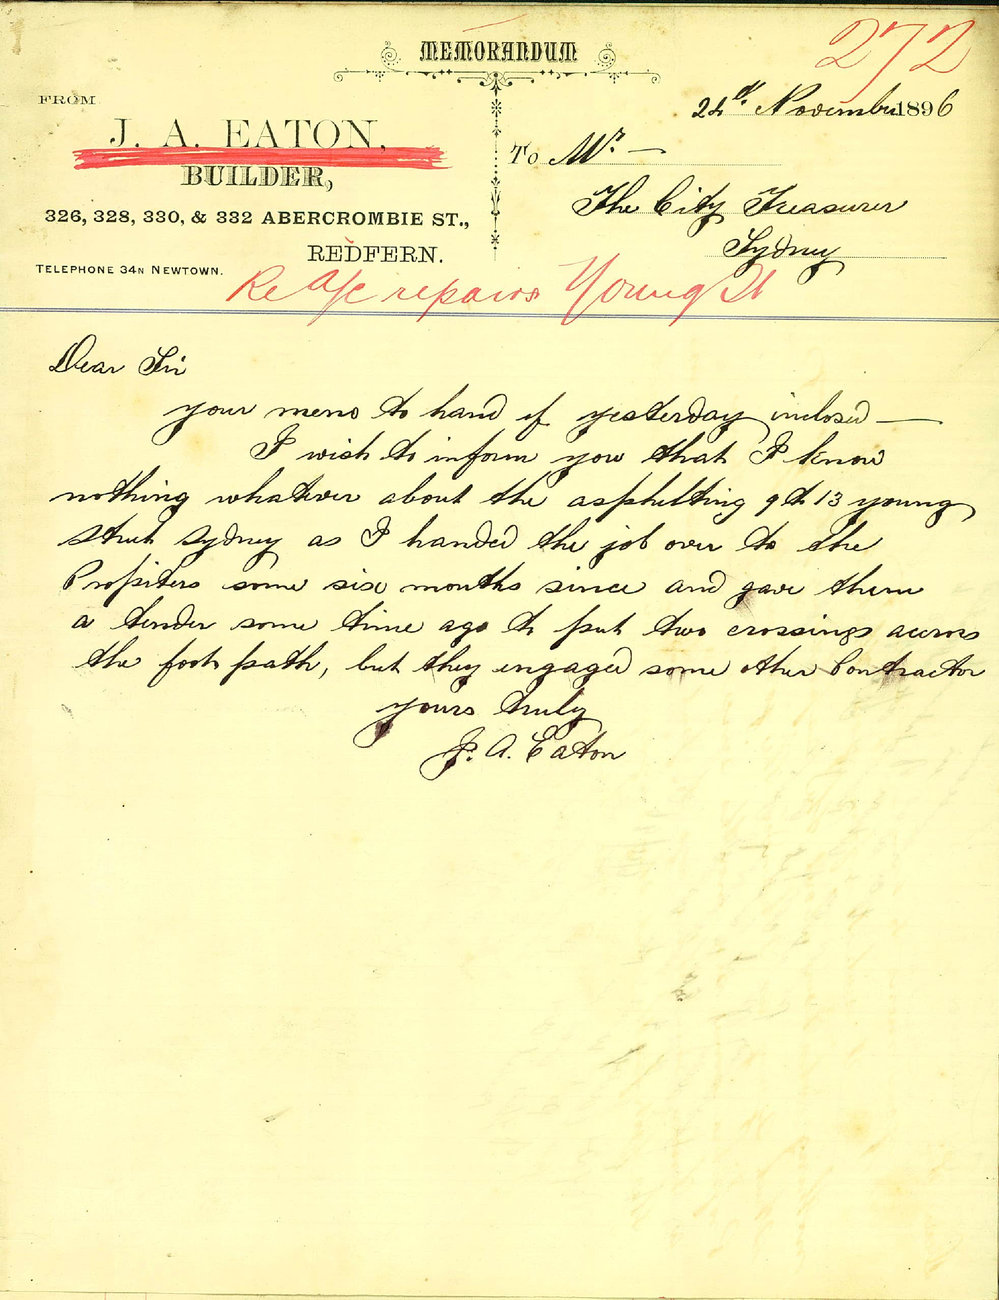 272
MEMORANDUM
FROM
J. A. EATON,
BUILDER,
326, 328, 330, & 332 ABERCROMBIE ST.,
REDFERN.
TELEPHONE 34N NEWTOWN.
24th Novembr 1896
To Mr —
The City Treasurer
Sydney
Re a/c repairs Young St
Dear Sir
your memo to hand of yesterday inclosed —
I wish to inform you that I know
nothing whatever about the asphelting 9 to 13 young
street Sydney as I handed the job over to the
some six months since and gave them
a tender some time ago to put two crossings accross
the foot path, but they engaged some other Contractor
yours truly
J. A. Eaton